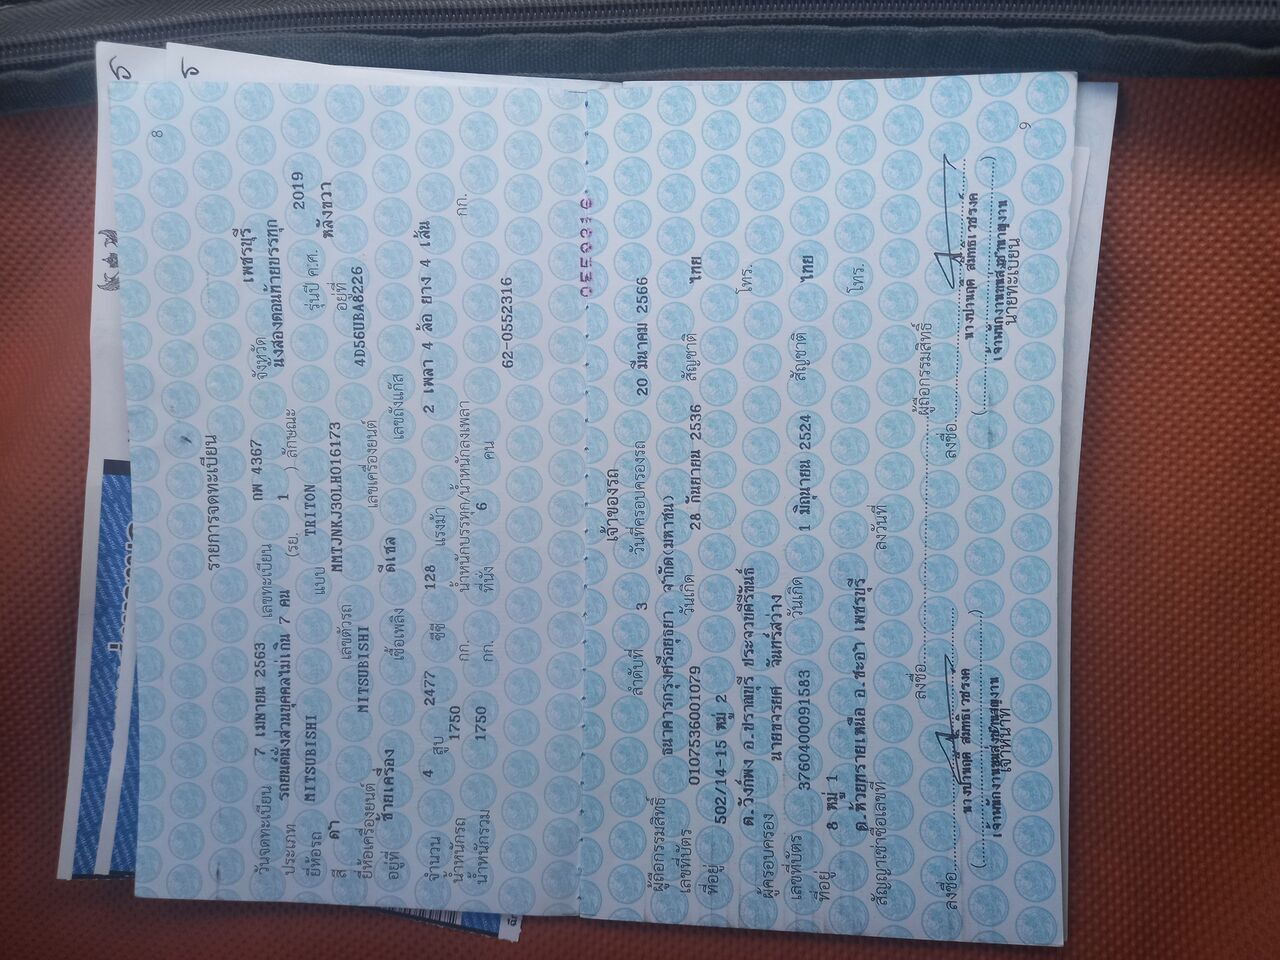 8
รายการจดทะเบียน
วันจดทะเบียน 7 เมษายน 2563 เลขทะเบียน กพ 4367 จังหวัด เพชรบุรี
ประเภท รถยนต์นั่งส่วนบุคคลไม่เกิน 7 คน (รย. 1 ) ลักษณะ นั่งสองตอนท้ายบรรทุก
ยี่ห้อรถ MITSUBISHI แบบ TRITON รุ่นปี ค.ศ. 2019
สี ดำ เลขตัวรถ MMTJNKJ30LH016173 อยู่ที่ หลังขวา
ยี่ห้อเครื่องยนต์ MITSUBISHI เลขเครื่องยนต์ 4D56UBA8226
อยู่ที่ ซ้ายเครื่อง เชื้อเพลิง ดีเซล เลขถังแก๊ส
จำนวน 4 สูบ 2477 ซีซี 128 แรงม้า 2 เพลา 4 ล้อ ยาง 4 เส้น
น้ำหนักรถ 1750 กก. น้ำหนักบรรทุก/น้ำหนักลงเพลา กก.
น้ำหนักรวม 1750 กก. ที่นั่ง 6 คน
62-0552316
เจ้าของรถ
ลำดับที่ 3 วันที่ครอบครองรถ 20 มีนาคม 2566
ผู้ถือกรรมสิทธิ์ ธนาคารกรุงศรีอยุธยา จำกัด(มหาชน)
เลขที่บัตร 0107536001079 วันเกิด 28 กันยายน 2536 สัญชาติ ไทย
ที่อยู่ 502/14-15 หมู่ 2
ต.วังก์พง อ.ปราณบุรี ประจวบคีรีขันธ์ โทร.
ผู้ครอบครอง นายขจรยศ จันทร์สว่าง
เลขที่บัตร 3760400091583 วันเกิด 1 มิถุนายน 2524 สัญชาติ ไทย
ที่อยู่ 8 หมู่ 1
ต.ห้วยทรายเหนือ อ.ชะอำ เพชรบุรี โทร.
สัญญาเช่าซื้อเลขที่ ลงวันที่
ลงชื่อ ผู้ถือกรรมสิทธิ์
ลงชื่อ ลงชื่อ
เจ้าหน้าที่ นายทะเบียน
9